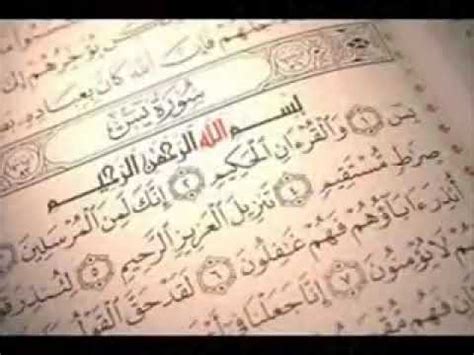 يُؤَخِّرُهُمْ إِلَىٰ
فَإِنَّ ٱللَّهَ كَانَ بِعِبَادِهِ
سُورَةُ يسٓ
بِسْمِ ٱللَّهِ ٱلرَّحْمَٰنِ ٱلرَّحِيمِ
يسٓ ١ وَٱلْقُرْءَانِ ٱلْحَكِيمِ ٢ إِنَّكَ لَمِنَ ٱلْمُرْسَلِينَ
صِرَٰطٍ مُّسْتَقِيمٍ ٤ تَنزِيلَ ٱلْعَزِيزِ ٱلرَّحِيمِ ٥ لِتُنذِرَ
أُنذِرَ ءَابَآؤُهُمْ فَهُمْ غَٰفِلُونَ ٦ لَقَدْ حَقَّ ٱلْقَوْلُ
لَا يُؤْمِنُونَ ٧ إِنَّا جَعَلْنَا فِىٓ